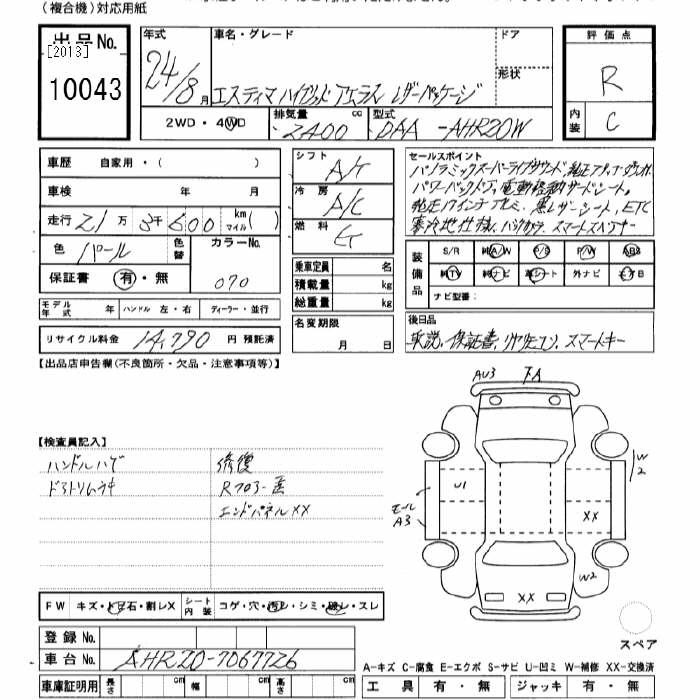 (複合機)対応用紙
出品No.
[2013]
10043
年式
24/8月
車名・グレード
エスティマ ハイブリッド アエラス レザーパッケージ
ドア
形状
評価点
R
内装
C
2WD・4WD
排気量
2400 cc
型式
DAA-AHR20W
車歴 自家用・( )
車検 年 月
走行 21万 3千600 km マイル( )
色 パール
色替
カラーNo.
070
保証書 有・無
モデル年式 年 ハンドル 左・右 ディーラー・並行
リサイクル料金 14,790 円 預託済
シフト A/T
冷房 A/C
燃料
乗車定員 名
積載量 kg
総重量 kg
名変期限
月 日
セールスポイント
パノラミックスーパーライブサウンド,純正
パワーバックドア,電動 サードシート,
純正 アルミ,黒レザーシート,ETC
寒冷地仕様,バックカメラ スマート
装備品
S/R 純A/W P/S P/W ABS
純TV 純ナビ 革シート 外ナビ エアB
ナビ型番:
後日品
取説,保証書,リヤリモコン,スマートキー
【出品店申告欄(不良箇所・欠品・注意事項等)】
【検査員記入】
ハンドルハゲ 修復
ドアトリムキ R フロアー
エンドパネルXX
AU3
下A
W2
U1
モール
A3
XX
W2
XX
スペア
FW キズ・トビ石・割レX シート内装 コゲ・穴・汚レ・シミ・破レ・スレ
登録No.
車台No. AHR20-7067726
車庫証明用 長さ cm 幅 cm 高さ cm
A-キズ C-腐食 E-エクボ S-サビ U-凹ミ W-補修 XX-交換済
工具 有・無 ジャッキ 有・無